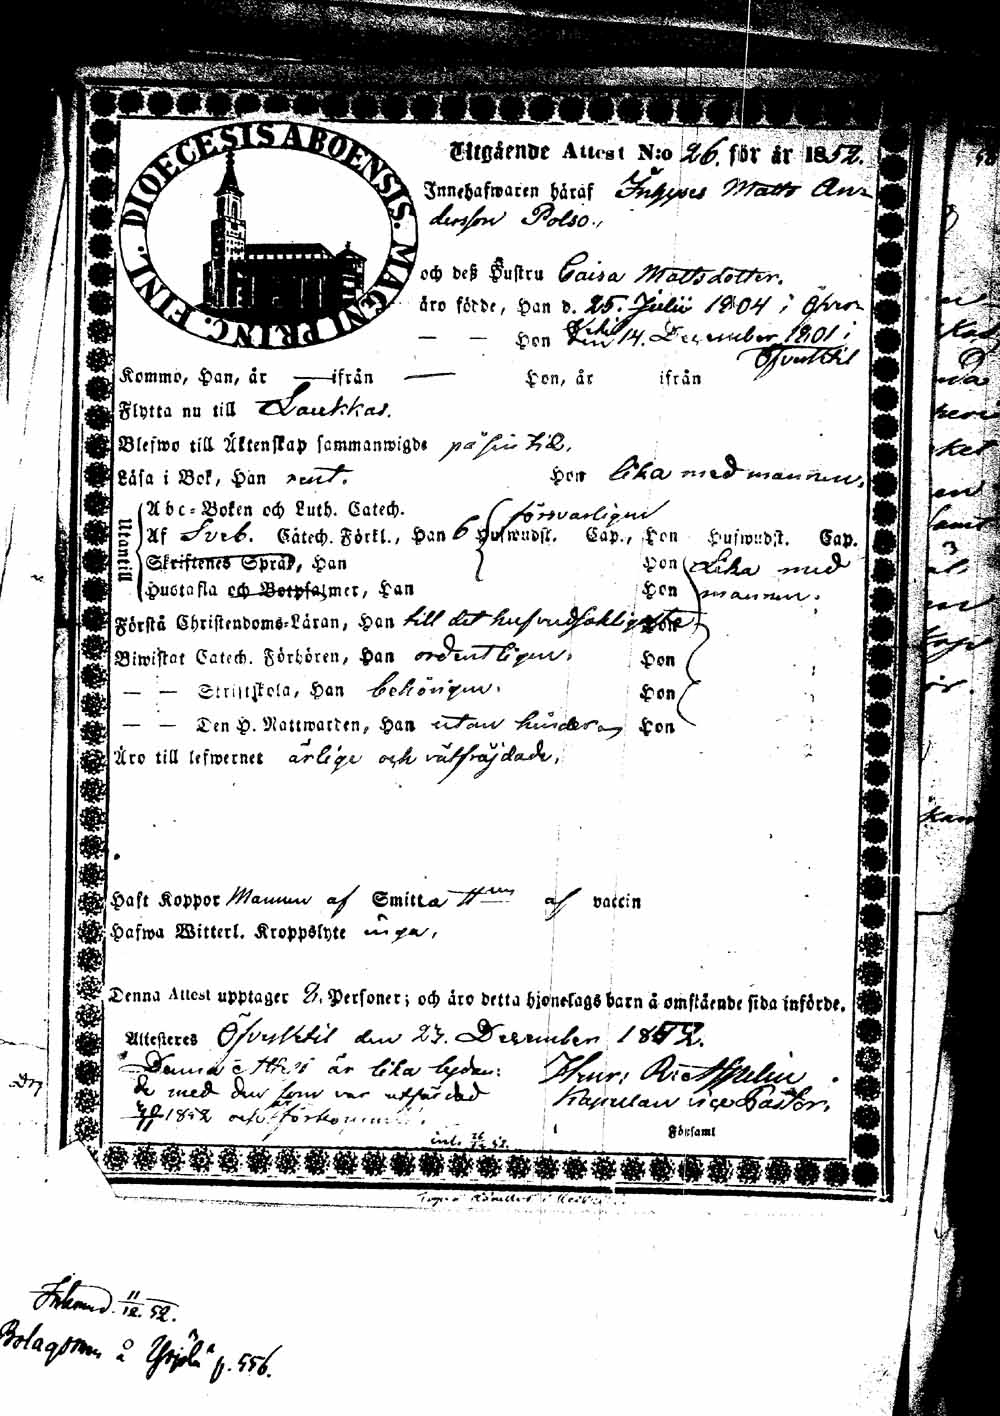 DIOECESIS ABOENSIS. MAGNI PRINC. FINL.
Utgående Attest N:o 26. för år 1852.
Innehafwaren häraf Inhyses Matts An-
dersson Polso.,
och deß Hustru Caisa Mattsdotter.
äro födde, Han d. 25. Julii 1804 i Öfver-
— — Hon den 14. December 1801 i
Öfvertil
Kommo, Han, år — ifrån — Hon, år ifrån
Flytta nu till Laukkas.
Blefwo till Äktenskap sammanwigde på sin tid.
Läsa i Bok, Han rent. Hon lika med mannen.
Utantill
Abc-Boken och Luth. Catech. försvarligen
Af Sveb. Catech. Förkl., Han 6 Hufwudst. Cap., Hon Hufwudst. Cap.
Skriftenes Språk, Han Hon Lika med
Hustafla och Botpsalmer, Han Hon mannen.
Förstå Christendoms-Läran, Han till det hufvudsakligaste Hon
Biwistat Catech. Förhören, Han ordentligen. Hon
— — Skriftskola, Han behörigen. Hon
— — Den H. Nattwarden, Han utan hinder Hon
Äro till lefwernet ärlige och välfräjdade.
Haft Koppor Mannen af Smitta H:un af vaccin
Hafwa Witterl. Kroppslyte inga.
Denna Attest upptager 2. Personer; och äro detta hjonelags barn å omstående sida införde.
Attesteres den 23. December 1852.
Denna Attest är lika lydan:
de med den som var utfärdad
1852 och förkommit.
Kapellan vice Pastor.
Församl
11/12. 52.
Bolagsman å p. 556.